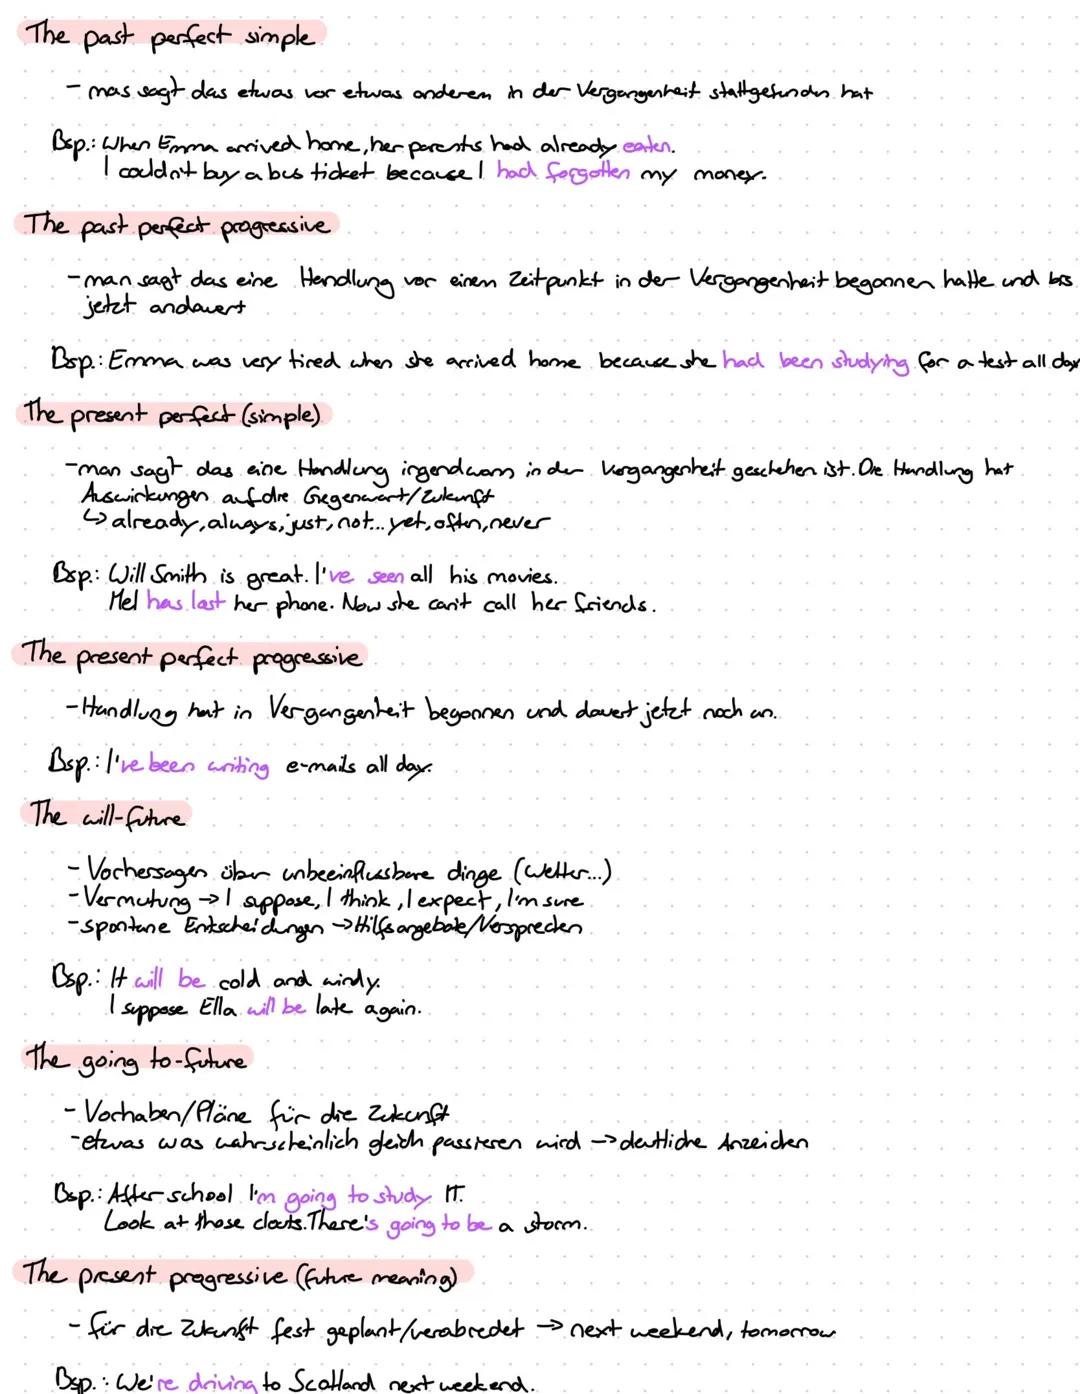 The past perfect simple
- mas sagt das etwas vor etwas anderem in der Vergangenheit stattgefunden hat
Bsp.: When Emma arrived home, her parents had already eaten.
I couldn't buy a bus ticket because I had forgotten my money.
The past perfect progressive
- man sagt das eine Handlung vor einem Zeitpunkt in der Vergangenheit begonnen hatte und bis
jetzt andauert
Bsp.: Emma was very tired when she arrived home because she had been studying for a test all day
The present perfect (simple)
- man sagt das eine Handlung irgendwann in der Vergangenheit geschehen ist. Die Handlung hat
Auswirkungen auf die Gegenwart/Zukunft
↳ already, always, just, not... yet, often, never
Bsp.: Will Smith is great. I've seen all his movies.
Mel has last her phone. Now she can't call her friends.
The present perfect progressive
- Handlung hat in Vergangenheit begonnen und dauert jetzt noch an.
Bsp.: I've been writing e-mails all day.
The will-future
- Vorhersagen über unbeeinflussbare dinge (Wetter...)
- Vermutung → I suppose, I think, I expect, I'm sure
- spontane Entscheidungen → Hilfsangebote/Versprechen
Bsp.: It will be cold and windy.
I suppose Ella will be late again.
The going to-future
- Vorhaben/Pläne für die Zukunft
- etwas was wahrscheinlich gleich passieren wird → deutliche Anzeichen
Bsp.: After school I'm going to study IT.
Look at those clouts. There's going to be a storm.
The present progressive (future meaning)
- für die Zukunft fest geplant/verabredet → next weekend, tomorrow
Bsp.: We're driving to Scotland next weekend.